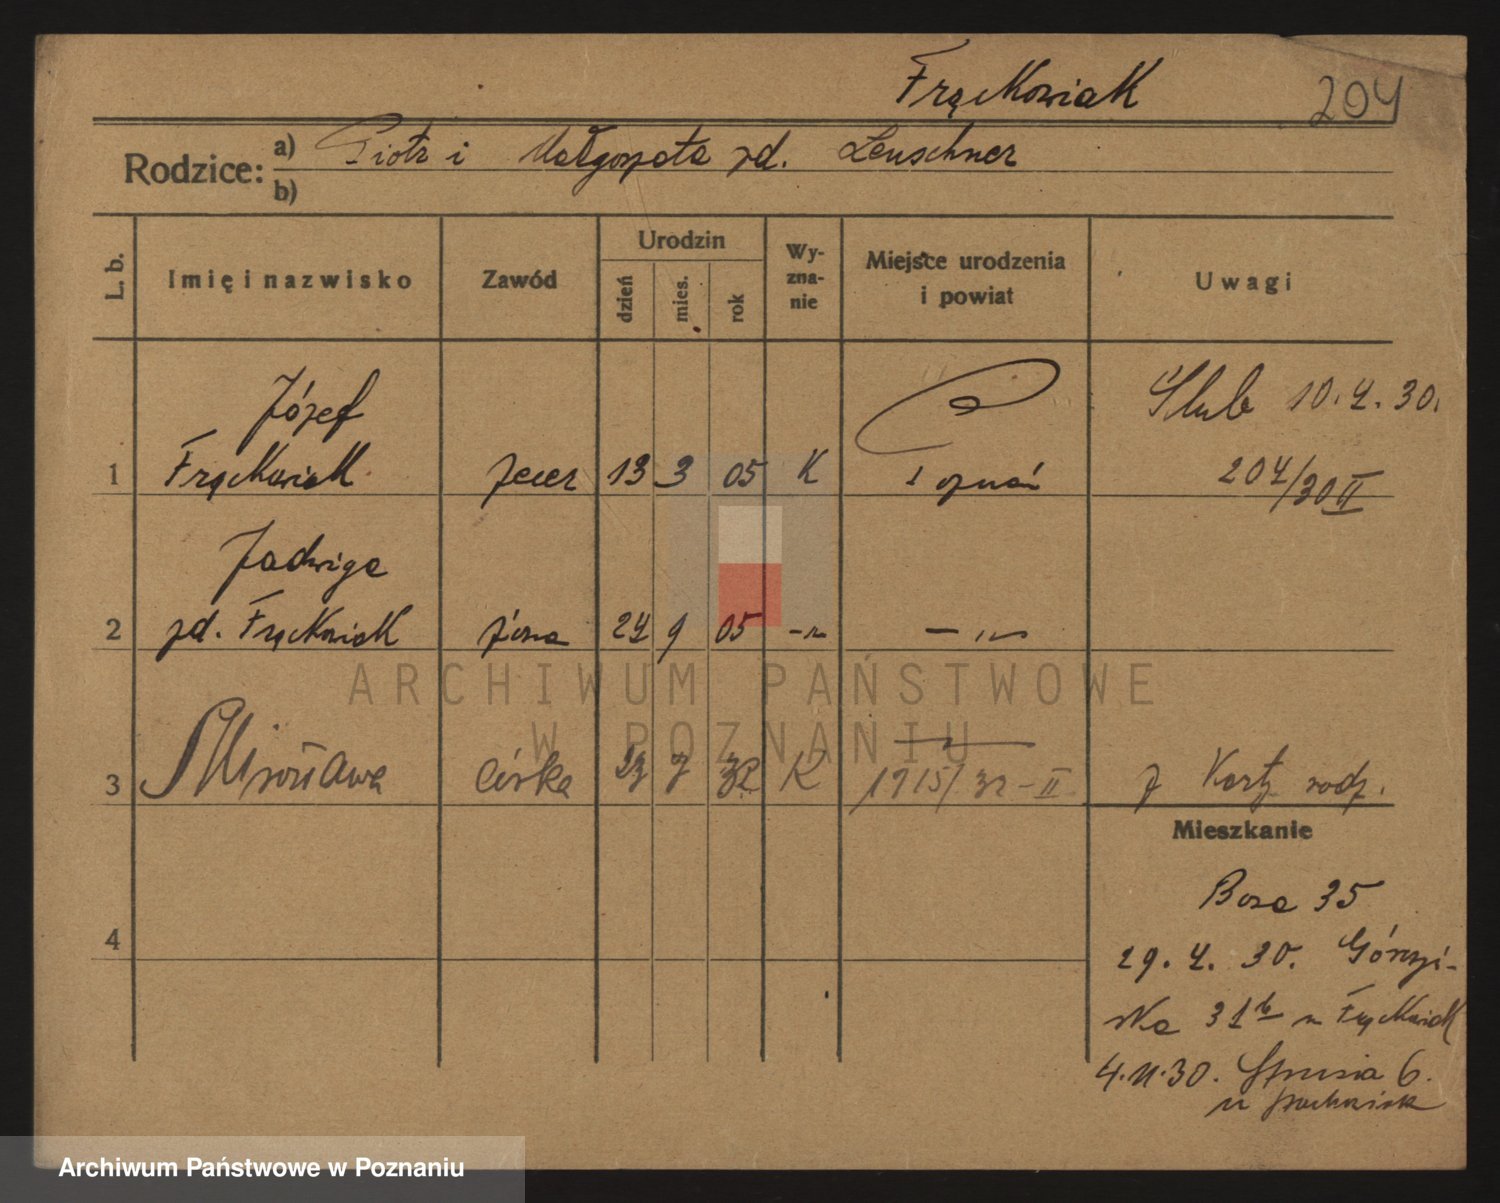 Frąckowiak
204
Rodzice: a) Piotr i Małgorzata zd. Leuschner
b)
L. b.
Imię i nazwisko
Zawód
Urodzin
dzień
mies.
rok
Wy-
zna-
nie
Miejsce urodzenia
i powiat
Uwagi
Józef
1 Frąckowiak zecer 13 3 05 K Poznań
Ślub 10.4.30.
204/30 II
Jadwiga
2 zd. Frąckowiak żona 24 9 05 -"- -"-
3 Mirosława córka 7 32 K 1715/32-II z Karty rodz.
Mieszkanie
4
Boza 35
29.4.30. Górczyń-
ska 31b u Frąckowiak
4.11.30. 6.
u
ARCHIWUM PAŃSTWOWE
W POZNANIU
Archiwum Państwowe w Poznaniu